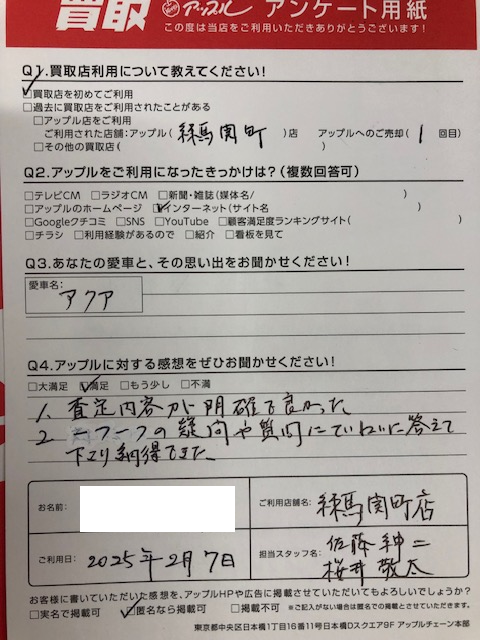 買取 アップル アンケート用紙
この度は当店をご利用いただきありがとうございます!
Q1.買取店利用について教えてください!
□買取店を初めてご利用
□過去に買取店をご利用されたことがある
□アップル店をご利用
ご利用された店舗:アップル( 練馬関町 )店 アップルへのご売却( 1 回目)
□その他の買取店( )
Q2.アップルをご利用になったきっかけは?(複数回答可)
□テレビCM □ラジオCM □新聞・雑誌(媒体名/ )
□アップルのホームページ ☑インターネット(サイト名 )
□Googleクチコミ □SNS □YouTube □顧客満足度ランキングサイト( )
□チラシ □利用経験があるので □紹介 □看板を見て
Q3.あなたの愛車と、その思い出をお聞かせください!
愛車名:
アクア
Q4.アップルに対する感想をぜひお聞かせください!
□大満足 ☑満足 □もう少し □不満
1. 査定内容が明確で良かった
2 一つ一つの疑問や質問にていねいに答えて
下さり納得できた。
お名前: ご利用店舗名: 練馬関町店
ご利用日: 2025年2月7日 担当スタッフ名: 佐藤紳二
桜井敬太
お客様に書いていただいた感想を、アップルHPや広告に掲載させていただいてもよろしいでしょうか?
□実名で掲載可 ☑匿名なら掲載可 □掲載不可 ※ご記入がない場合は匿名での掲載とさせていただきます。
東京都中央区日本橋1丁目16番11号日本橋Dスクエア9F アップルチェーン本部